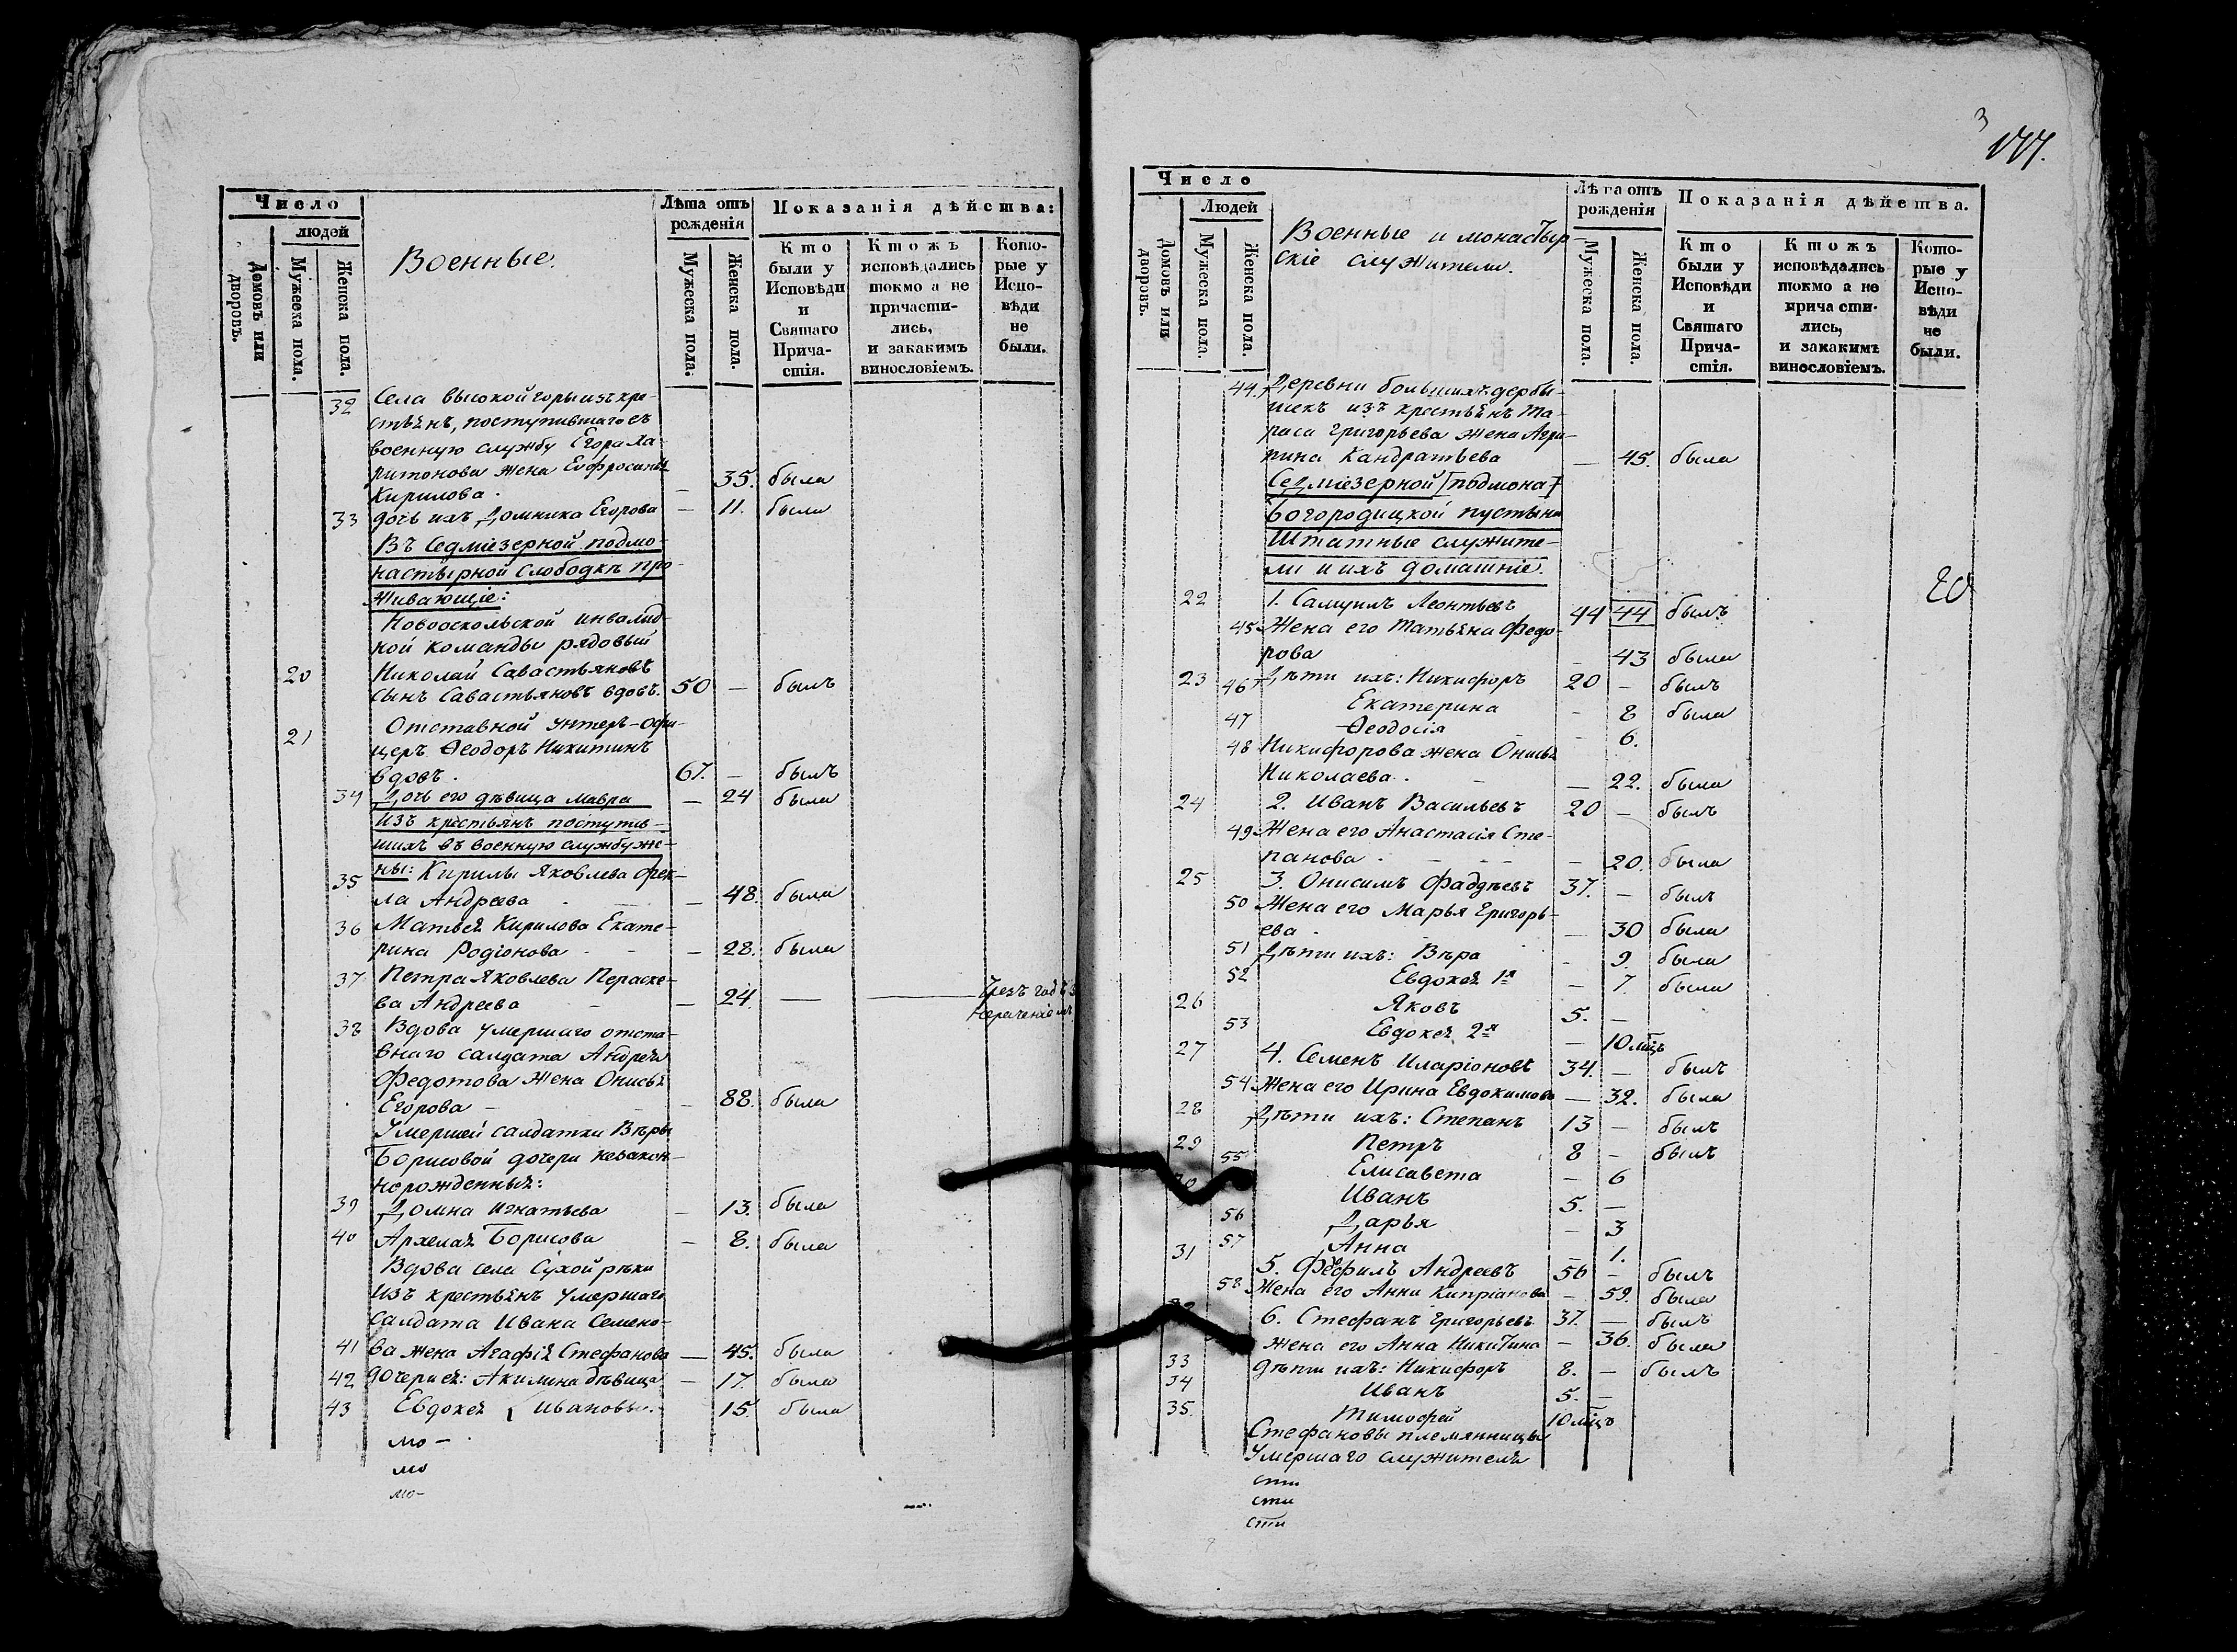 Число
людей
Домовъ или дворовъ.
Мужеска пола.
Женска пола.
Военные.
Лѣта отъ рожденія
Мужеска пола.
Женска пола.
Показанія дѣйства:
Кто были у Исповѣди и Святаго Причастія.
Ктожъ исповѣдались токмо а не причастились, и закакимъ винословіемъ.
Которые у Исповѣди не были.
32 Села высокой горы изъ кре-
стьянъ, поступившаго въ
военную службу Егора Ха-
ритонова жена Евфросинья
Кирилова. — 35. была
33 дочь ихъ Домника Егорова — 11. была
Въ Седміезерной подмо-
настырной слободкѣ про-
живающіе:
Новооскольской инвалид-
ной команды рядовый
20 Николай Савастьяновъ
сынъ Савастьяновъ вдовъ. 50 — былъ
Отставной унтеръ-офи-
21 церъ Ѳеодоръ Никитинъ
вдовъ. 67. — былъ
34 Дочь его дѣвица Мавра — 24 была
Изъ крестьянъ поступив-
шихъ въ военную службу же-
35 ны: Кирилы Яковлева Фек-
ла Андреева — 48. была
36 Матвея Кирилова Екате-
рина Родіонова — 28. была
37 Петра Яковлева Параске-
ва Андреева — 24. — — Чрезъ годъ
нерачение
38 Вдова умершаго отста-
внаго салдата Андрея
Федотова жена Онисья
Егорова — — 88. была
Умершей салдатки Вѣры
Борисовой дочери незакон-
норожденныя:
39 Домна Игнатьева — 13. была
40 Борисова — 8. была
Вдова села Сухой рѣки
изъ крестьянъ умершаго
салдата Ивана Семено-
41 ва жена Агафія Стефанова — 45. была
42 дочери ея: Акилина дѣвица — 17. была
43 Евдокея Ивановы. 15. была
мо-
мо
мо-
3
177.
Число
Людей
Домовъ или дворовъ.
Мужеска пола.
Женска пола.
Военные и монастыр-
скіе служители.
Лѣта отъ рожденія
Мужеска пола.
Женска пола.
Показанія дѣйства.
Кто были у Исповѣди и Святаго Причастія.
Ктожъ исповѣдались токмо а не причастились, и закакимъ винословіемъ.
Которые у Исповѣди не были.
44. Деревни большихъ дербы-
шекъ изъ крестьянъ Та-
раса Григорьева жена Агри-
пина Кандратьева — 45. была
Седміезерной [подмона]
Богородицкой пустыни
Штатные служите-
ли и ихъ домашніе.
20
22 1. Самуилъ Леонтьевъ 44 44 былъ
45 Жена его Татьяна Федо-
рова — 43 была
23 46 Дѣти ихъ: Никифоръ 20 — былъ
Екатерина — 8 была
47 Ѳеодосія — 6.
48 Никифорова жена Онисья
Николаева. — — 22. была
24 2. Иванъ Васильевъ 20 — былъ
49 Жена его Анастасія Сте-
панова — 20. была
25 3. Онисимъ Фаддѣевъ 37. — былъ
50 Жена его Марья Григорь-
ева — 30 была
51 Дѣти ихъ: Вѣра — 9. была
52 Евдокея 1я — 7 была
26 Яковъ 5. —
53 Евдокея 2я — 10 мѣц
27 4. Семенъ Иларіоновъ 34. — былъ
54 Жена его Ирина Евдокимова — 32. была
28 Дѣти ихъ: Степанъ 13 — былъ
29 Петръ 8 — былъ
55 Елисавета — 6
Иванъ 5. —
56 Дарья — 3
57 Анна — 1.
31 5. Андреевъ 56 — былъ
58 Жена его Анна Кипріанова — 59. была
6. Стефанъ Григорьевъ 37. — былъ
жена его Анна Никитина — 36. была
33 дѣти ихъ: Никифоръ 8. — былъ
34 Иванъ 5. —
35. Тимофей 10 мѣцъ
Стефановы племянницы
умершаго служителя
сти
сти
сти